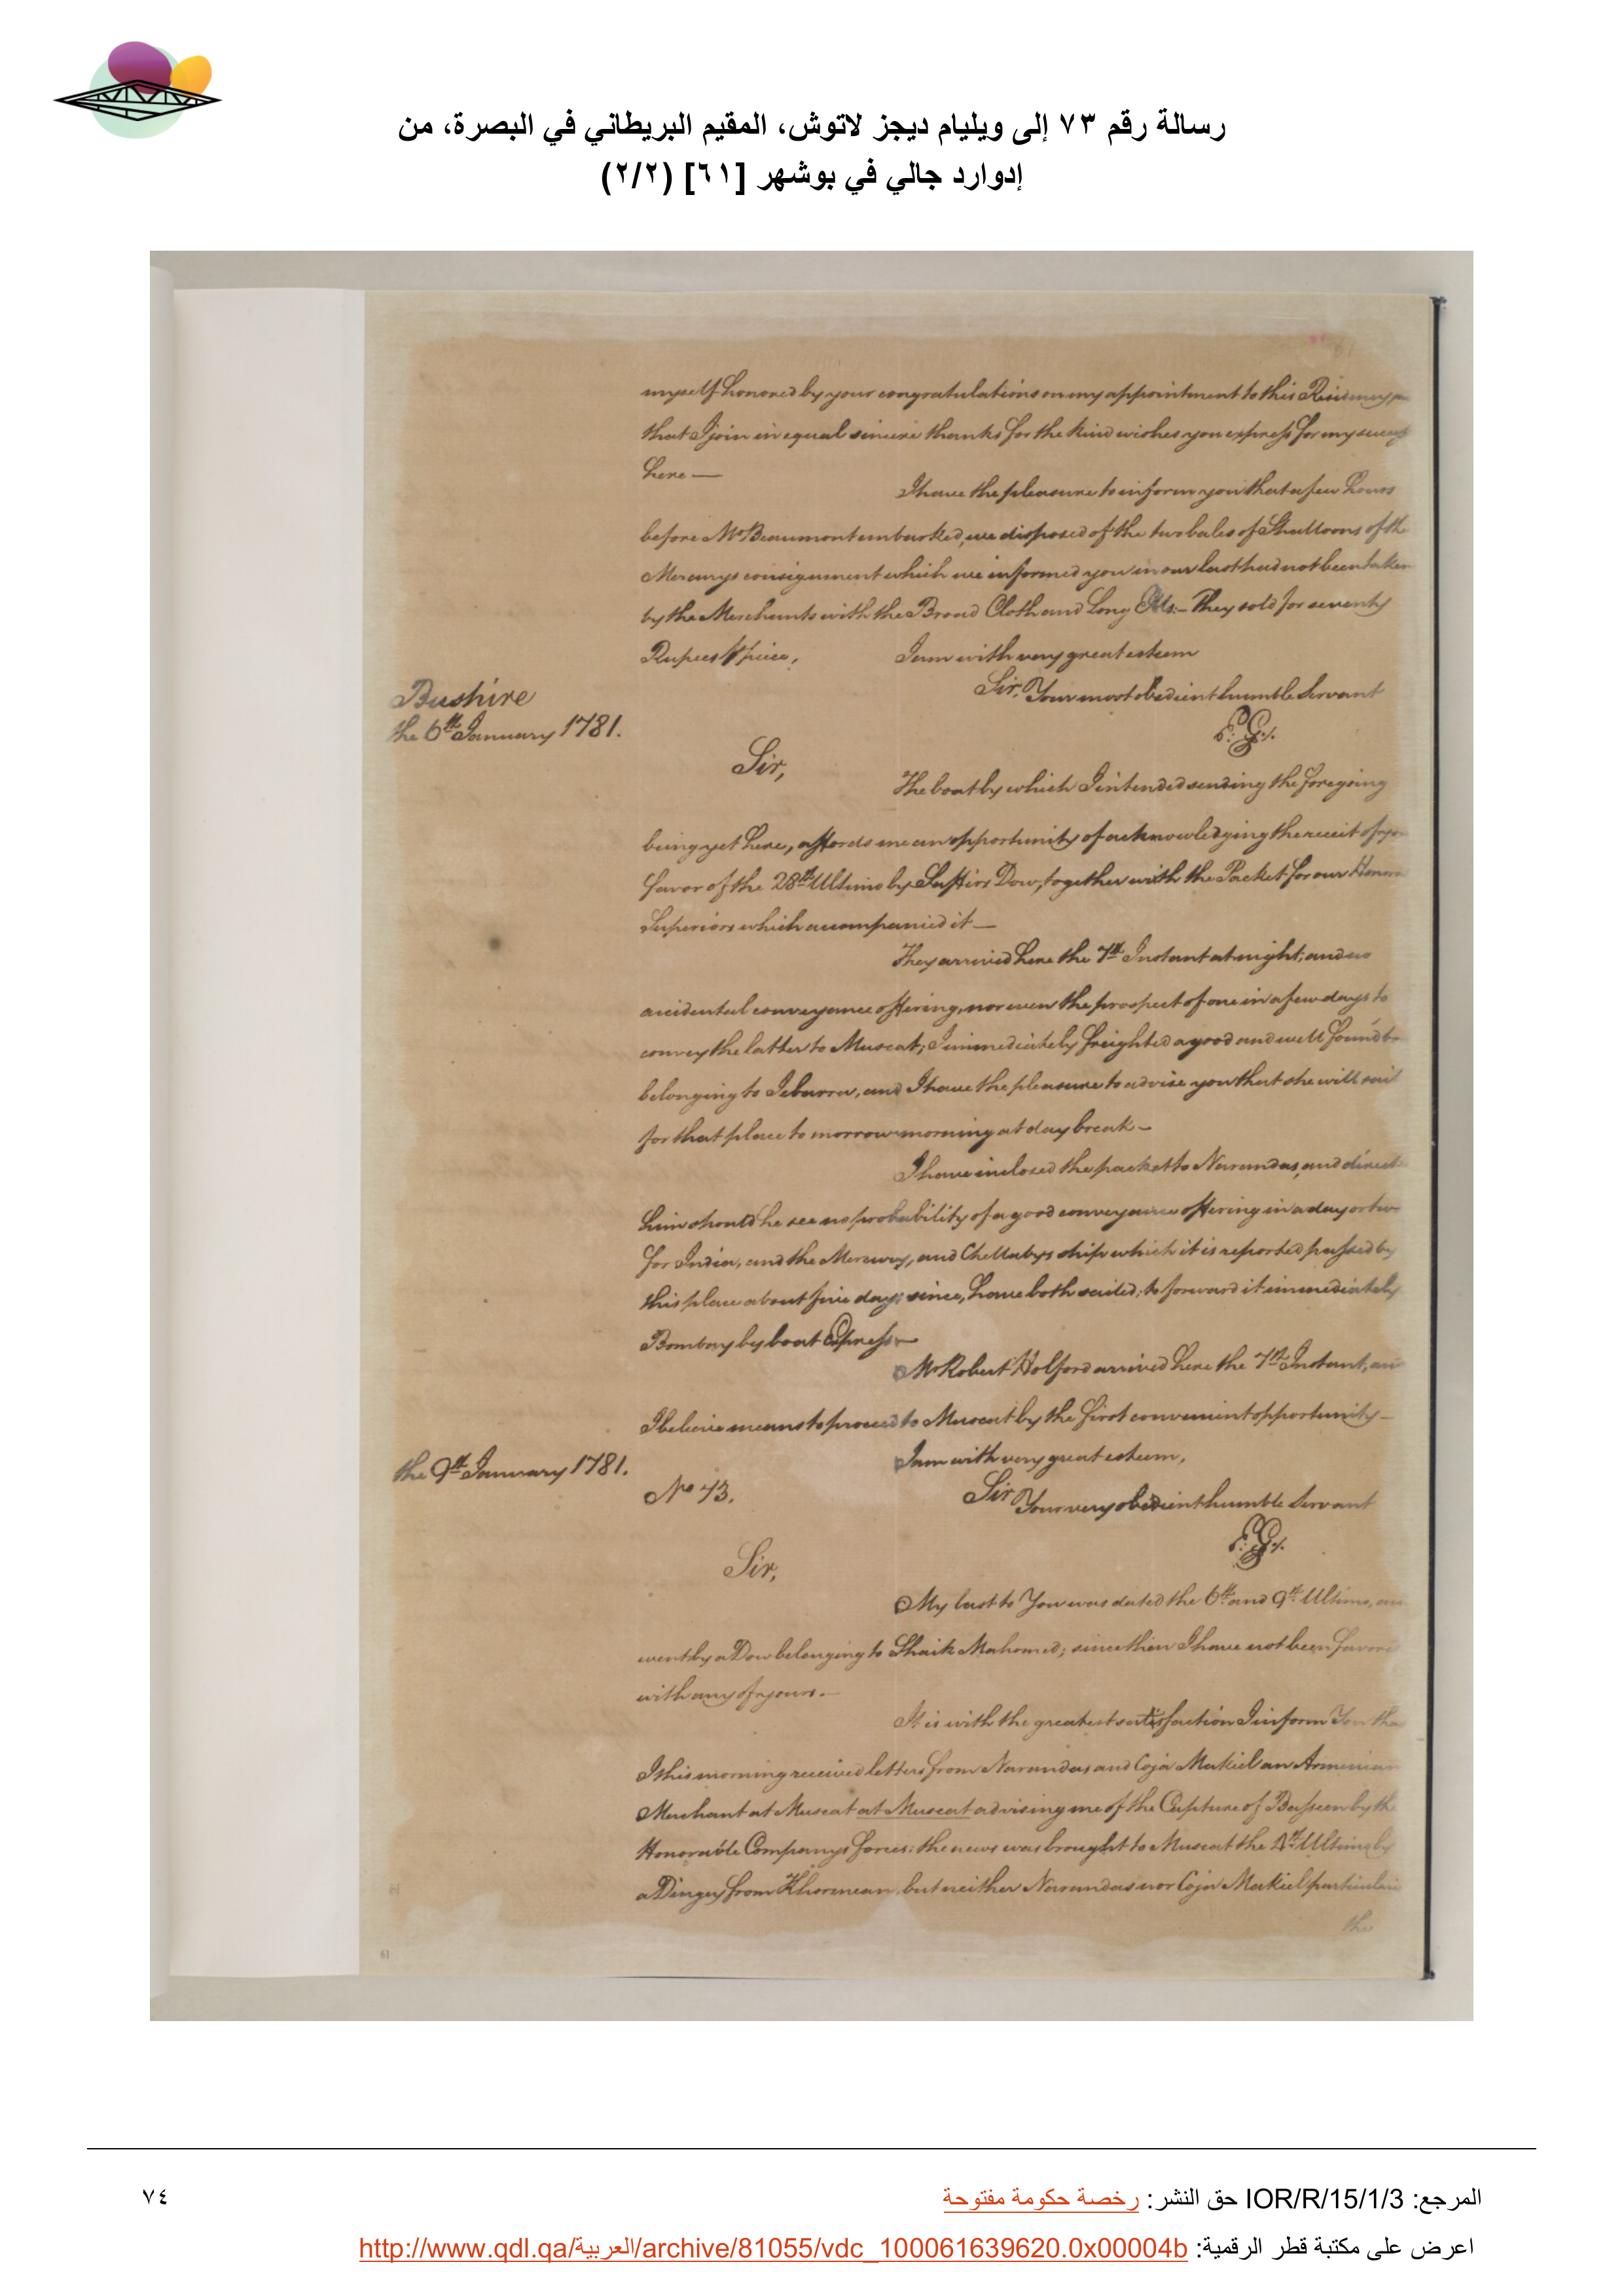 رسالة رقم ٧٣ إلى ويليام ديجز لاتوش، المقيم البريطاني في البصرة، من
إدوارد جالي في بوشهر [٦١] (٢/٢)
myself honored by your congratulations on my appointment to this Residency
that I join in equal sincere thanks for the kind wishes you express for my success
here —
I have the pleasure to inform you that a few hours
before Mr Beaumont embarked, we disposed of the two bales of Shalloons of the
Mercurys consignment which we informed you in our last had not been taken
by the Merchants with the Broad Cloth and Long Ells:– They sold for seventy
Rupees p piece,
I am with very great esteem
Sir, Your most obedient humble Servant
Bushire
the 6th January 1781.
E. G.
Sir,
The boat by which I intended sending the foregoing
being yet here, affords me an opportunity of acknowledging the receit of
favor of the 28th Ultimo by Dow, together with the Packet for our
Superiors which accompanied it —
They arrived here the 7th Instant at night; and no
accidental conveyance offering, nor even the prospect of one in a few days to
convey the latter to Muscat; I immediately freighted a good and well found
belonging to and I have the pleasure to advise you that she will sail
for that place to morrow morning at day break –
I have inclosed the packet to Narundas, and direct
him should he see no probability of a good conveyance offering in a day or two
for India, and the Mercury, and Chellabys ship which it is reported passed by
this place about five days since, have both sailed; to forward it immediately
Bombay by boat Express –
Mr Robert Holford arrived here the 7th Instant,
I believe means to proceed to Muscat by the first convenient opportunity –
I am with very great esteem,
the 9th January 1781.
No 73.
Sir Your very obedient humble Servant
E. G.
Sir,
My last to You was dated the 6th and 9th Ultimo,
went by a Dow belonging to Shaik Mahomed; since then I have not been
with any of yours. –
It is with the greatest satisfaction I inform You
I this morning received letters from Narundas and Coja Makiel an Armenian
Merchant at Muscat at Muscat advising me of the Capture of Basseen by the
Honorable Companys forces: the news was brought to Muscat the Ultimo by
a Dingey from but neither Narundas nor Coja Makiel
the
61
المرجع: IOR/R/15/1/3 حق النشر: رخصة حكومة مفتوحة
٧٤
اعرض على مكتبة قطر الرقمية: http://www.qdl.qa/العربية/archive/81055/vdc_100061639620.0x00004b